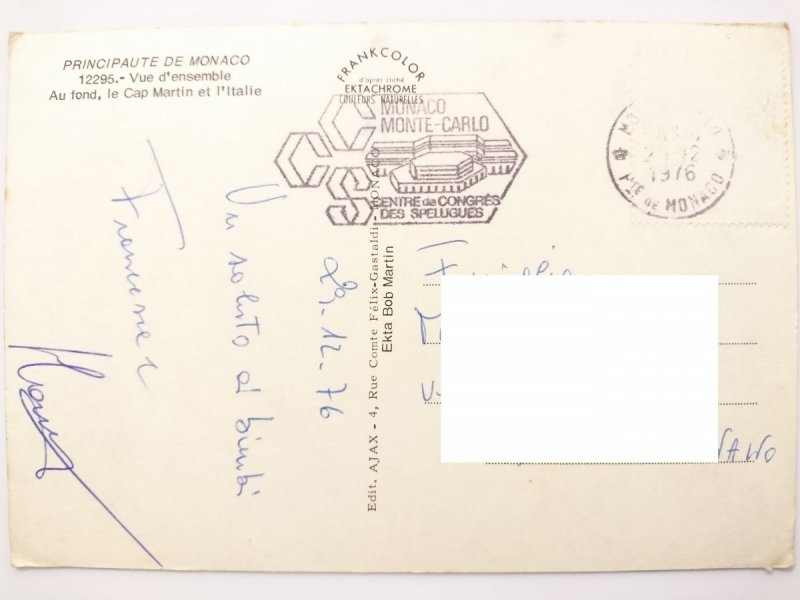 PRINCIPAUTE DE MONACO
12295.- Vue d'ensemble
Au fond, le Cap Martin et l'Italie
FRANKCOLOR
d'après cliché
EKTACHROME
COULEURS NATURELLES
MONACO
MONTE-CARLO
CENTRE de CONGRÈS
DES SPELUGUES
1976
PTE DE MONACO
Edit. AJAX - 4, Rue Comte Félix-Gastaldi - MONACO
Ekta Bob Martin
29-12-76
Un saluto ai bimbi